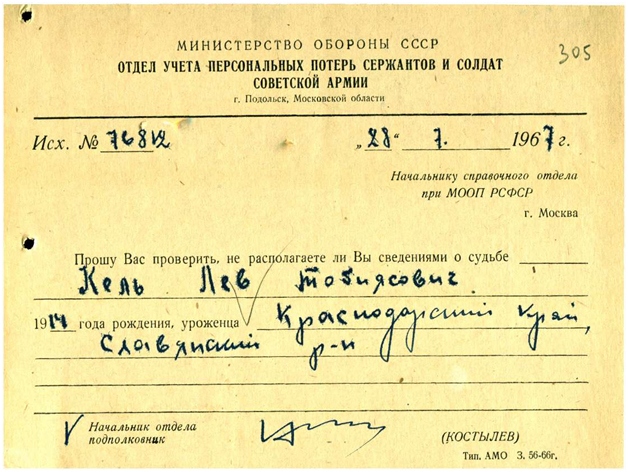 305
МИНИСТЕРСТВО ОБОРОНЫ СССР
ОТДЕЛ УЧЕТА ПЕРСОНАЛЬНЫХ ПОТЕРЬ СЕРЖАНТОВ И СОЛДАТ
СОВЕТСКОЙ АРМИИ
г. Подольск, Московской области
Исх. № 76812 „28“ 7. 1967 г.
Начальнику справочного отдела
при МООП РСФСР
г. Москва
Прошу Вас проверить, не располагаете ли Вы сведениями о судьбе
Кель Лев Тобиясович
1914 года рождения, уроженца Краснодарский край,
Славянский р-н
Начальник отдела
подполковник
(КОСТЫЛЕВ)
Тип. АМО З. 56-66г.